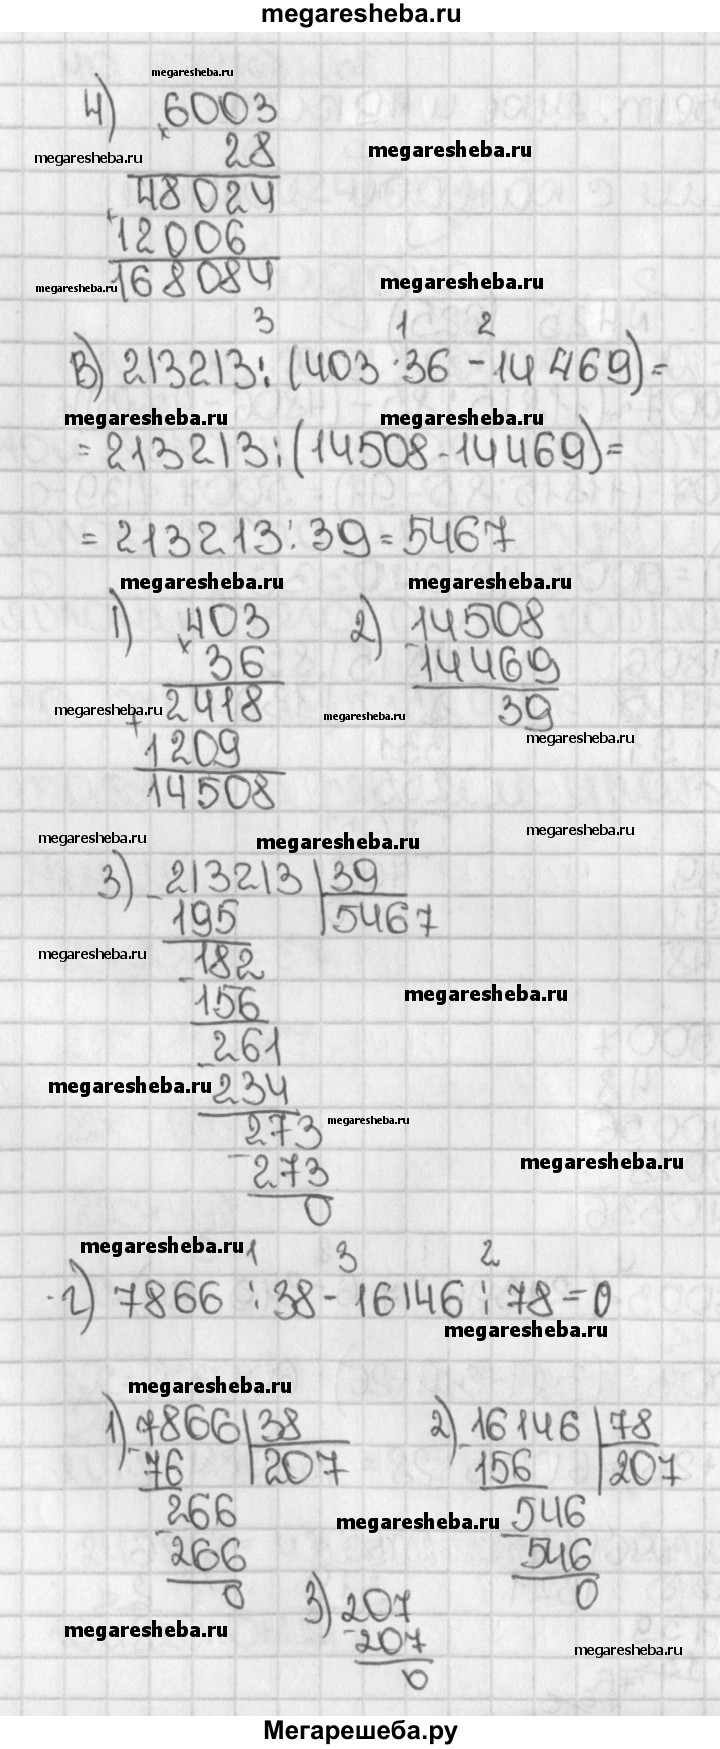 megaresheba.ru
megaresheba.ru
4) 6003
×
28
megaresheba.ru megaresheba.ru
48024
+
12006
168084
megaresheba.ru megaresheba.ru
3 1 2
В) 213213:(403·36-14469)=
megaresheba.ru megaresheba.ru
=213213:(14508-14469)=
=213213:39=5467
megaresheba.ru megaresheba.ru
1) 403 2) 14508
× 36 - 14469
2418 39
megaresheba.ru megaresheba.ru megaresheba.ru
+ 1209
14508
megaresheba.ru megaresheba.ru megaresheba.ru
3) -213213 39
195 5467
megaresheba.ru
-182
156
megaresheba.ru
-261
megaresheba.ru 234
273 megaresheba.ru
-273
megaresheba.ru
0
megaresheba.ru 1 3 2
г) 7866:38-16146:78=0
megaresheba.ru
megaresheba.ru
1) -7866 38 2) -16146 78
76 207 156 207
-266 megaresheba.ru -546
266 546
0 0
3) 207
megaresheba.ru -207 megaresheba.ru
0
Мегарешеба.ру